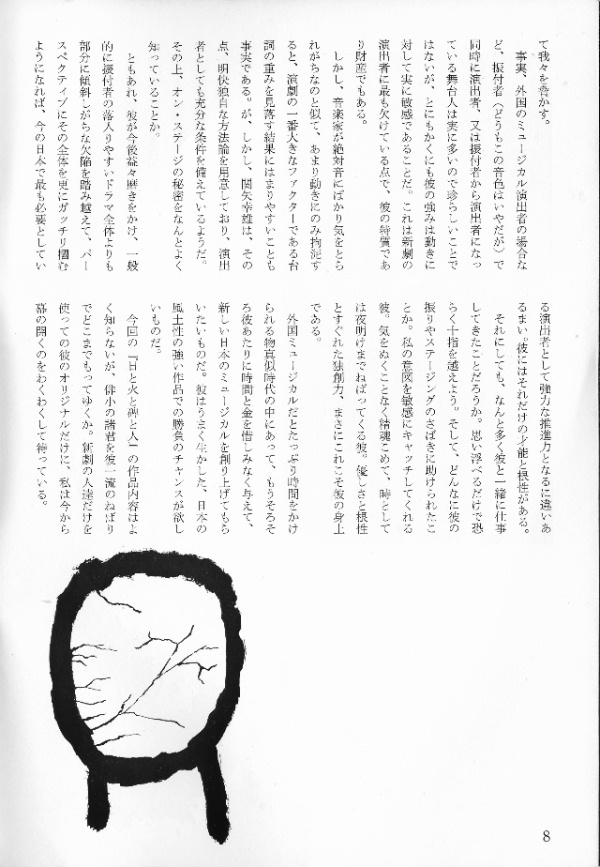 て我々を脅かす。
　事実、外国のミュージカル演出者の場合な
ど、振付者（どうもこの音色はいやだが）で
同時に演出者、又は振付者から演出者になっ
ている舞台人は実に多いので珍らしいことで
はないが、とにもかくにも彼の強みは動きに
対して実に敏感であることだ。これは新劇の
演出者に最も欠けている点で、彼の特質であ
り財産でもある。
　しかし、音楽家が絶対音にばかり気をとら
れがちなのと似て、あまり動きにのみ拘泥す
ると、演劇の一番大きなファクターである台
詞の重みを見落す結果にはまりやすいことも
事実である。が、しかし、関矢幸雄は、その
点、明快独自な方法論を用意しており、演出
者としても充分な条件を備えているようだ。
その上、オン・ステージの秘密をなんとよく
知っていることか。
　ともあれ、彼が今後益々磨きをかけ、一般
的に振付者の落入りやすいドラマ全体よりも
部分に傾斜しがちな欠陥を踏み越えて、パー
スペクティブにその全体を更にガッチリ摑む
ようになれば、今の日本で最も必要としてい
る演出者として強力な推進力となるに違いあ
るまい。彼にはそれだけの才能と根性がある。
　それにしても、なんと多く彼と一緒に仕事
してきたことだろうか。思い浮べるだけで恐
らく十指を越えよう。そして、どんなに彼の
振りやステージングのさばきに助けられたこ
とか。私の意図を敏感にキャッチしてくれる
彼。気をぬくことなく精魂こめて、時として
は夜明けまでねばってくる彼。優しさと根性
とすぐれた独創力、まさにこれこそ彼の身上
である。
　外国ミュージカルだとたっぷり時間をかけ
られる物真似時代の中にあって、もうそろそ
ろ彼あたりに時間と金を惜しみなく与えて、
新しい日本のミュージカルを創り上げてもら
いたいものだ。彼はうまく生かした、日本の
風土性の強い作品での勝負のチャンスが欲し
いものだ。
　今回の『日と火と碑と人』の作品内容はよ
く知らないが、俳小の諸君を彼一流のねばり
でどこまでもってゆくか。新劇の人達だけを
使っての彼のオリジナルだけに、私は今から
幕の開くのをわくわくして待っている。
8